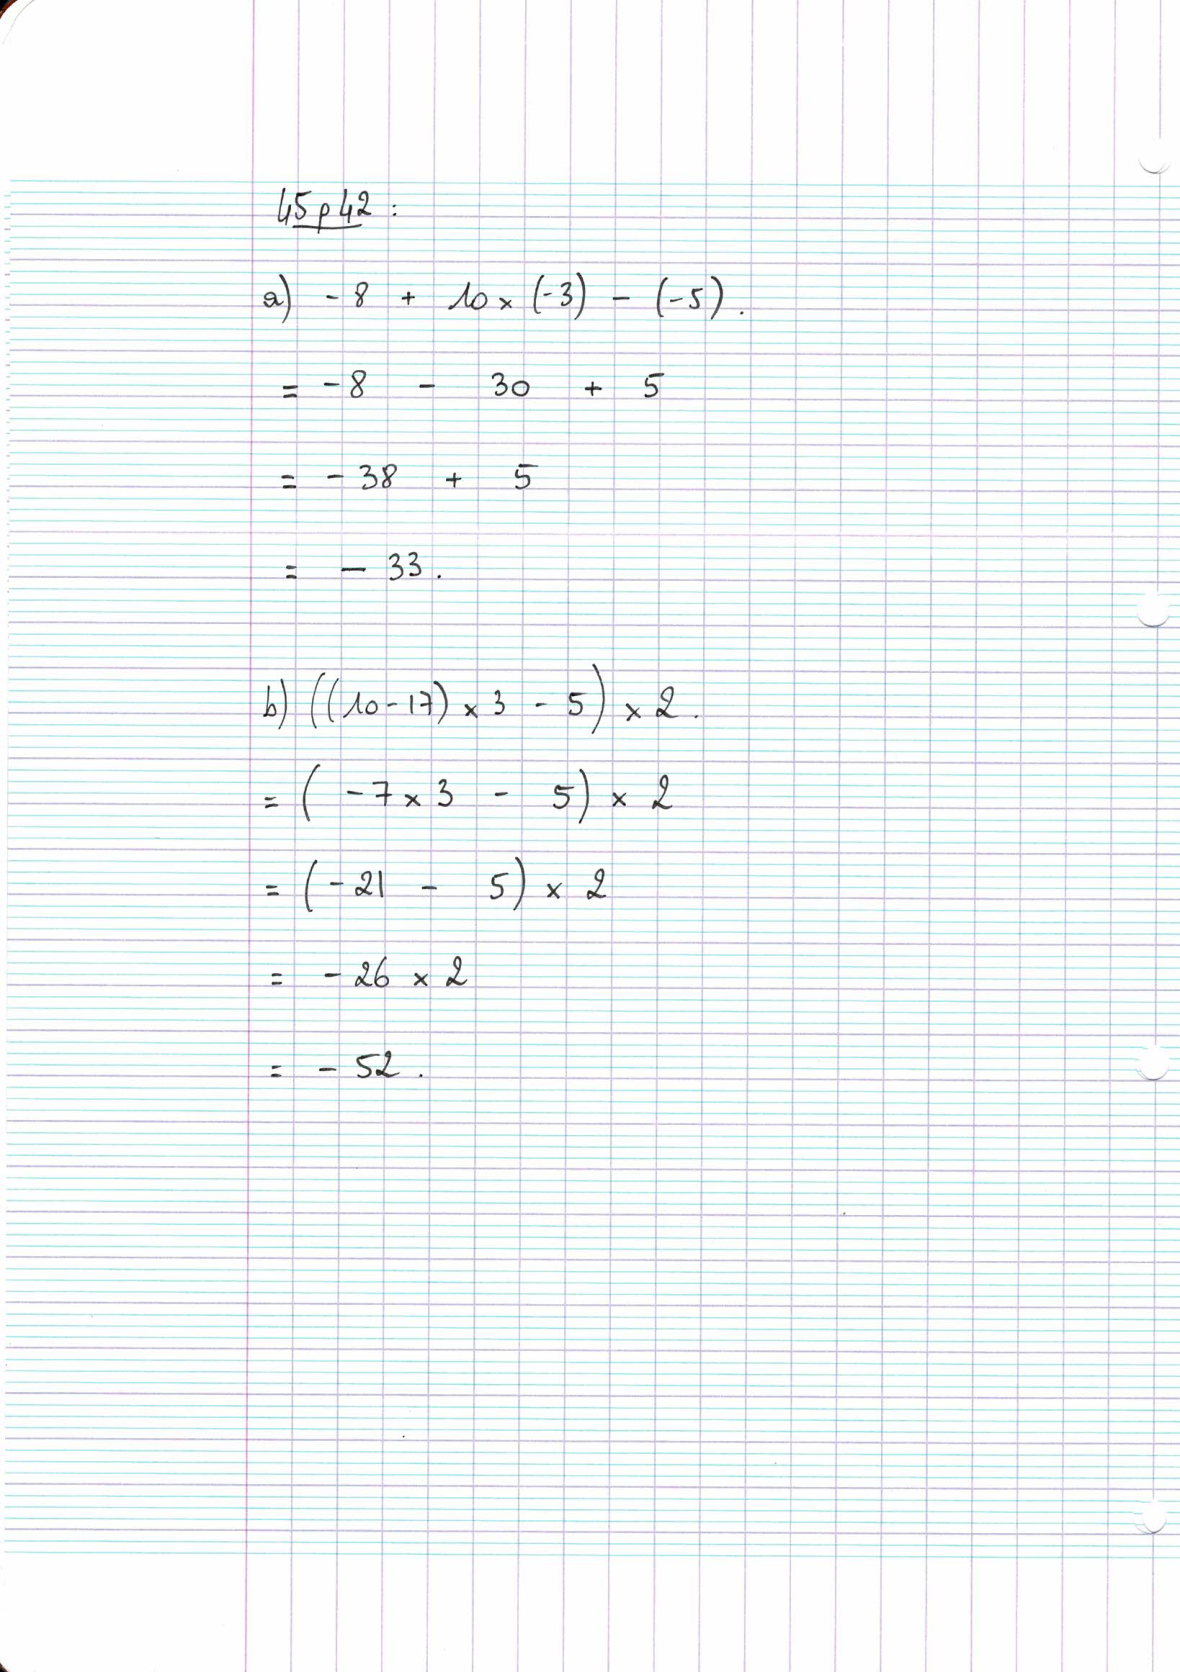 45 p 42 :
a) - 8 + 10 × (-3) - (-5).
= - 8 - 30 + 5
= - 38 + 5
= - 33.
b) ((10 - 17) × 3 - 5) × 2.
= ( - 7 × 3 - 5) × 2
= (- 21 - 5) × 2
= - 26 × 2
= - 52.